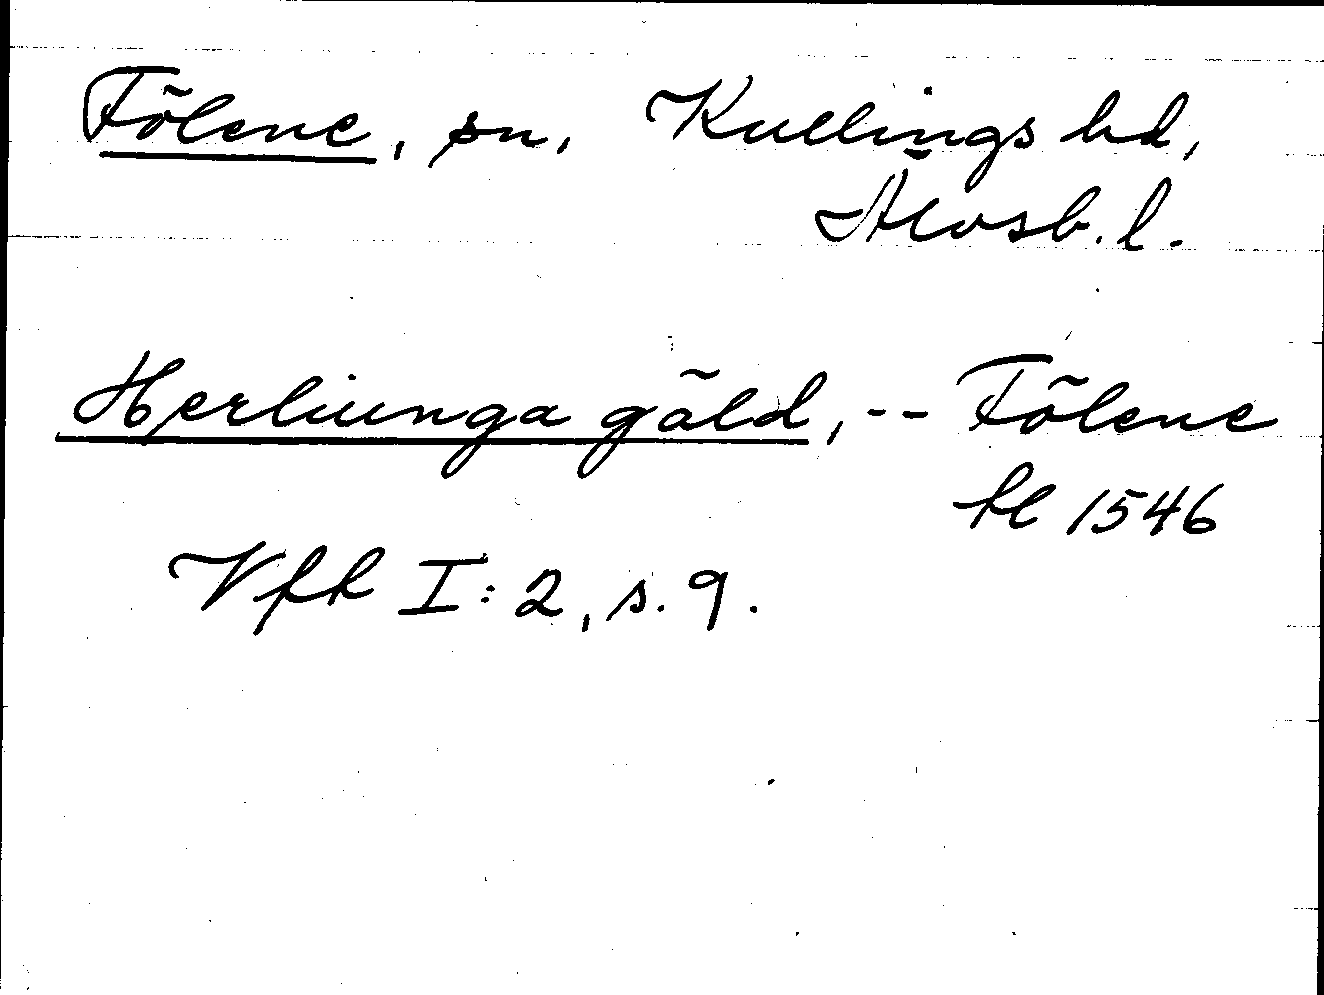 Fölene, sn, Kullings hd,
Älvsb. l.
Herliunga gäld, -- Fölene
hl 1546
Vfh I: 2, s. 9.